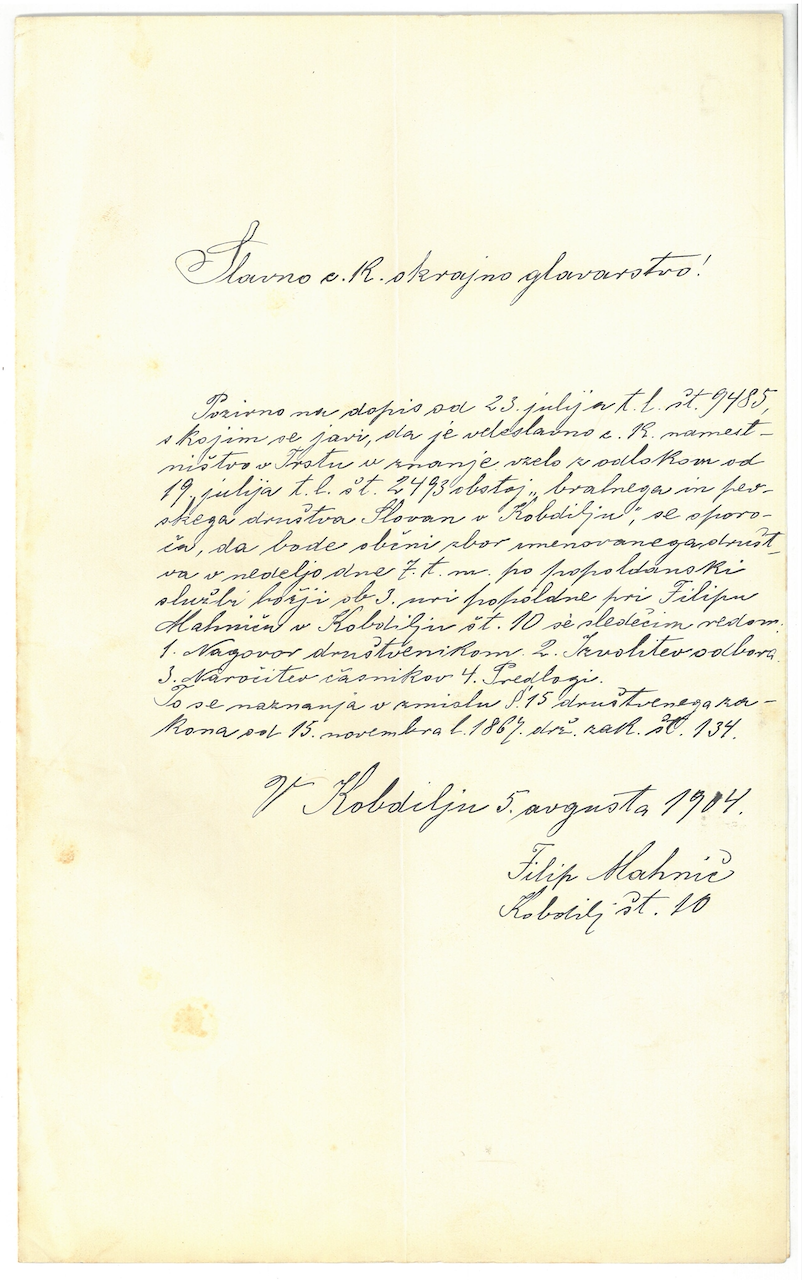 Slavno c. k. okrajno glavarstvo!
Pozivno na dopis od 23. julija t. l. št. 9485,
s kojim se javi, da je veleslavno c. k. namest-
ništvo v Trstu v znanje vzelo z odlokom od
19. julija t. l. št. 2493 obstoj „bralnega in pev-
skega društva Slovan v Kobdilju“, se sporo-
ča, da bode občni zbor imenovanega društ-
va v nedeljo dne 7. t. m. po popoldanski
službi božji ob 3. uri popoldne pri Filipu
Mahniču v Kobdilju št. 10 se sledečim redom:
1. Nagovor društvenikom. 2. Izvolitev odbora
3. Naročitev časnikov 4. Predlogi.
To se naznanja v zmislu §. 15 društvenega za-
kona od 15. novembra l. 1867. drž. zak. št. 134.
V Kobdilju 5. avgusta 1904.
Filip Mahnič
Kobdilj št. 10